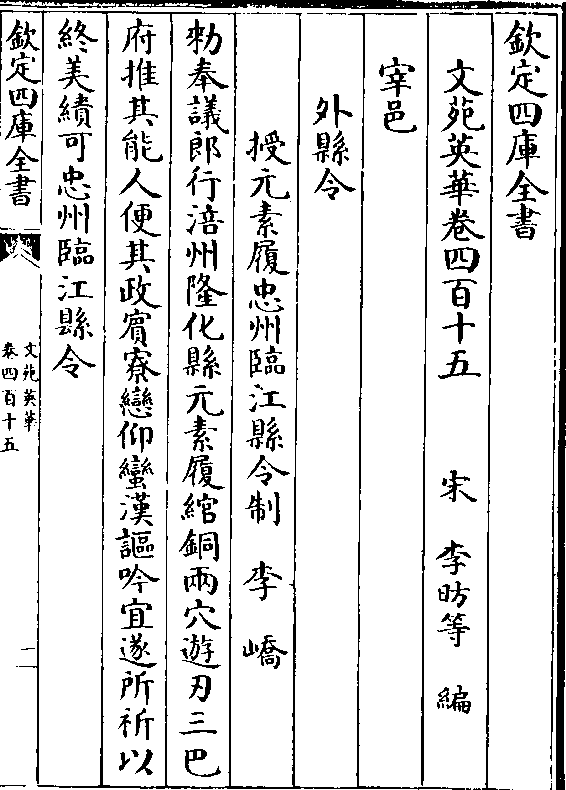 欽定四庫全書
文苑英華卷四百十五　宋　李昉等　編
宰邑
外縣令
授元素履忠州臨江縣令制　李嶠
勑奉議郎行涪州隆化縣元素履綰銅兩穴遊刃三巴
府推其能人便其政賔寮戀仰蠻漢謳吟宜遂所祈以
終美績可忠州臨江縣令
欽定四庫全書
文苑英華
卷四百十五